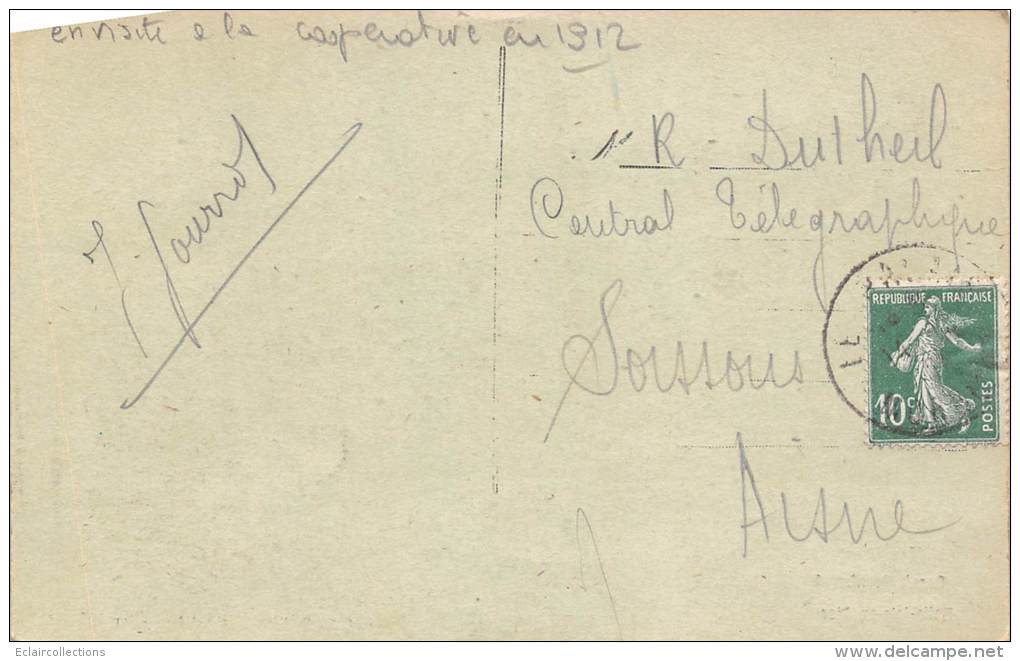 en visite a la cooperative en 1912
R Dutheil
Central Télégraphique
Soissons
Aisne
J Gourrof
REPUBLIQUE FRANÇAISE
10c
POSTES
Eclaircollections
www.delcampe.net